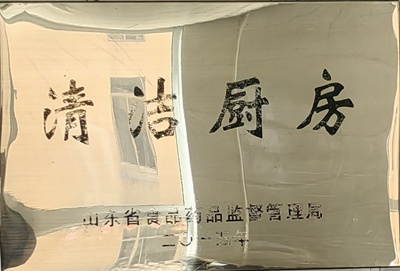 清洁厨房
山东省食品药品监督管理局
二〇一年